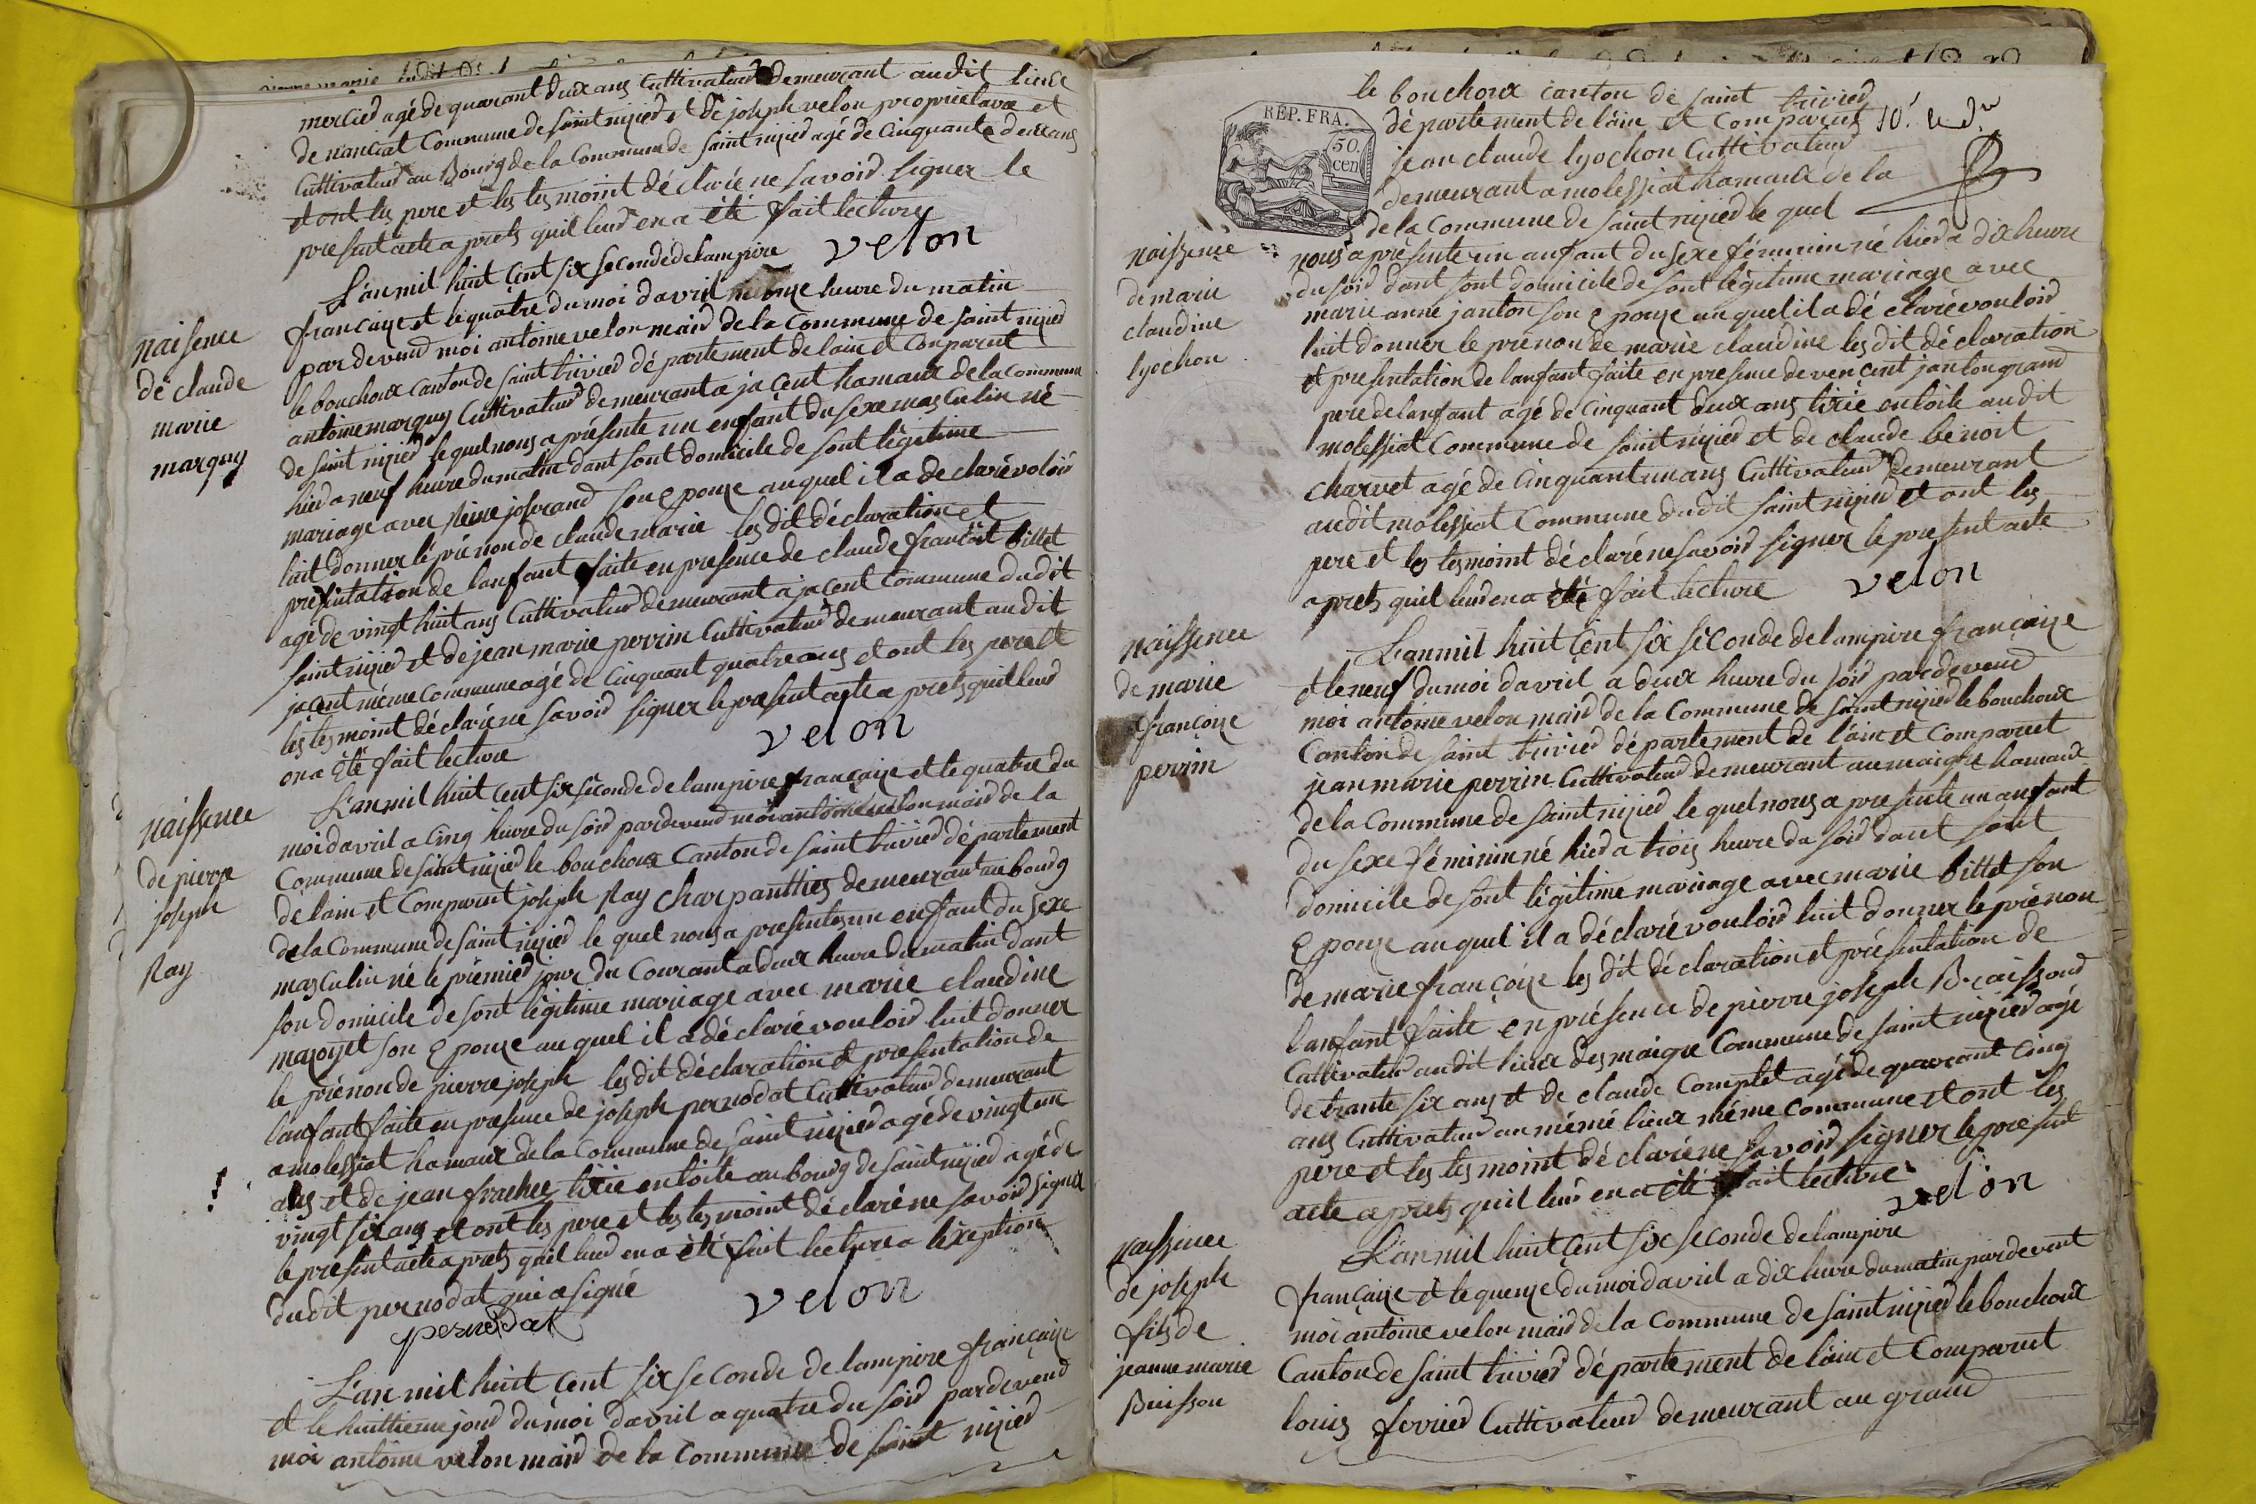 mercier agé de quarant deux ans Cultivateur demeurant audit lieux
de nanciat Commune de saint nizier et de joseph velon propriétaire et
Cultivateur au Bourg de la Commune de saint nizier agé de Cinquante deux ans
et ont les pere et les tesmoint déclaré ne savoir signer le
present acte aprets quil leur en a été fait lecture
velon
L'an mil huit cent six seconde de lampire
française et le quatre du moi davril a onze heure du matin
par devend moi antoine velon maird de la Commune de saint nizier
le bouchoux canton de saint trivier département de lain et Comparut
antoine marguy Cultivateur demeurant a jacent hamaux de la commune
de saint nizier le quel nous a présente un enfant du sexe masculin né
hier a neuf heure du matin dant sont domicile de sont légitime
mariage avec Reine joserand son epouze auquel il a de claré voloir
luit donner lé prénon de claude marie les dit déclaration et
présentation de lanfant faite en presence de claude françoit billet
agé de vingt huit ans Cultivateur demeurant a jacent Commune dudit
saint nizier et de jean marie perrin Cultivateur demeurant audit
jacent même commune agé de Cinquant quatre ans et ont les pere et
les tesmoint déclaré ne savoir signer le present acte a prets quil leur
on a été fait lecture
velon
naisence
de claude
marie
marguy
L'an mil huit cent six séconde de lampire française et le quatre du
moi davril a cinq heure du soir par devend moi antoine velon maird de la
Commune de saint nizier le bouchoux Canton de saint trivier département
de lain et Comparut joseph Ray charpanttier demeurant au bourg
de la Commune de saint nizier le quel nous a presentes un enfant du sexe
masculin né le prémier jour du Courant a deux heure du matin dant
son domicile de sont légitime mariage avec marie claudine
mazoyet son epouze au quel il a déclaré vouloir luit donner
le prénon de pierre joseph les dit déclaration et presentation de
lanfant faite en presence de joseph pernodat Cultivateur demeurant
a molessiat hamaux de la Commune de saint nizier agé de vingt un
ans et de jean frachet titie en toile au bourg de saint nizier agé de
vingt six ans et ont les pere et les tesmoint déclaré ne savoir signer
le present acte a prets quil leur en a été fait lecture a léxeption
dudit pernodat qui a signé
velon
pernodat
naissence
de pierre
joseph
Ray
L'an mil huit cent six se conde de lampire française
et le huittieme jour du moi davril a quatre du soir par devend
moi antoine velon maird de la Commune de saint nizier
le bouchoux canton de saint trivier
département de lain et Comparut
jean claude lyochon Cultivateur
demeurant a molessiat hamaux de la
de la Commune de saint nizier le quel
RÉP. FRA.
50.
cen
nous a présente un anfant du sexe féminin né hier a dix heure
du soir dant sont domicile de sont légitime mariage avec
marie anne janton son epouze auquel il a dé claré vouloir
luit donner le prénon de marie claudine les dit déclaration
et presentation de lanfant faite en presence de vencent janton grand
pere de lanfant agé de Cinquant deux ans titie en toile audit
molessiat Commune de saint nizier et de claude benoit
charvet agé de Cinquant un ans Cultivateur demeurant
audit molessiat Commune dudit saint nizier et ont les
pere et les tesmoint déclaré ne savoir signer le present acte
a prets quil leur en a été fait lecture
velon
naissence
de marie
claudine
lyochon
L'an mil huit cent six seconde de lampire française
et le neuf du moi davril a deux heure du soir par devend
moi antoine velon maird de la Commune de saint nizier le bouchoux
Canton de saint trivier département de lain et Comparut
jean marie perrin Cultivateur demeurant au maigre hamaux
de la Commune de saint nizier le quel nous a presente un anfant
du sexe féminin né hier a trois heure du soir dant sont
domicile de sont légitime mariage avec marie billet son
epouze auquel il a déclaré vouloir luit donner le prénon
de marie françoise les dit déclaration et présentation de
lanfant faite en présence de pierre joseph Braissoud
Cultivateur audit lieux des maigre Commune de saint nizier agé
de trante six ans et de claude Complet agé de quarant cinq
ans Cultivateur au même lieux même commune et ont les
pere et les tesmoint déclaré ne savoir signer le present
acte a prets quil leur en a été fait lecture
velon
naissence
de marie
françoize
perrin
L'an mil huit cent six seconde de lampire
française et le quenze du moi davril a dix heure du matin par devent
moi antoine velon maird de la Commune de saint nizier le bouchoux
Canton de saint trivier département de lain et Comparut
louis ferrier Cultivateur demeurant au grand
naissence
de joseph
fils de
jeanne marie
Buisson